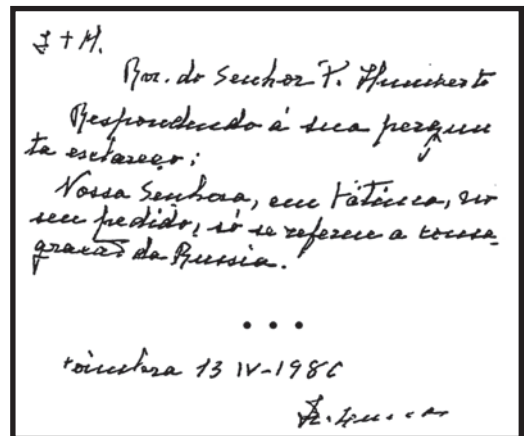 J + M.
Rev. do Senhor P. Humberto
Respondendo á sua pergun
ta esclareço:
Nossa Senhora, em Fátima, no
seu pedido, só se referiu a consa_
gração da Russia.
. . .
Coimbra 13 IV-1980
Ir. Lucia